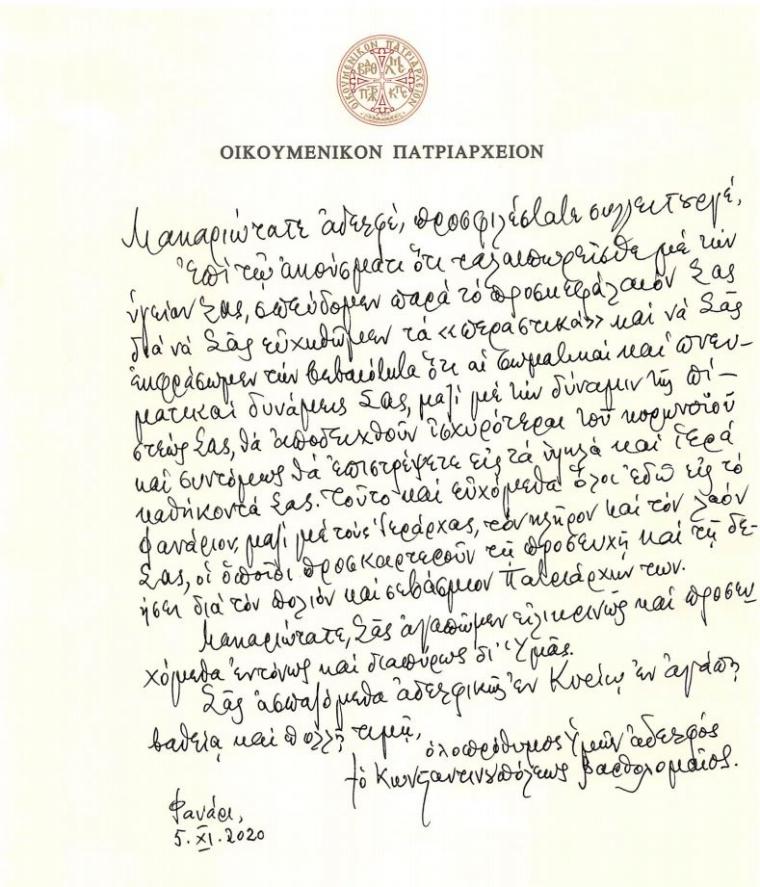 ΟΙΚΟΥΜΕΝΙΚΟΝ ΠΑΤΡΙΑΡΧΕΙΟΝ
ΟΙΚΟΥΜΕΝΙΚΟΝ ΠΑΤΡΙΑΡΧΕΙΟΝ
Μακαριώτατε ἀδελφέ, προσφιλέστατε συλλειτουργέ,
Ἐπί τῷ ἀκούσματι ὅτι ταλαιπωρεῖσθε μέ τήν
ὑγείαν Σας, σπεύδομεν παρά τό προσκεφάλαιόν Σας
διά νά Σᾶς εὐχηθῶμεν τά «περαστικά» καί νά Σᾶς
ἐκφράσωμεν τήν βεβαιότητα ὅτι αἱ σωματικαί καί πνευ-
ματικαί δυνάμεις Σας, μαζί μέ τήν δύναμιν τῆς πί-
στεώς Σας, θά ἀποδειχθοῦν ἰσχυρότεραι τοῦ κορωνοϊοῦ
καί συντόμως θά ἐπιστρέψετε εἰς τά ὑψηλά καί ἱερά
καθήκοντά Σας. Τοῦτο καί εὐχόμεθα ὅλοι ἐδῶ εἰς τό
Φανάριον, μαζί μέ τούς Ἱεράρχας, τόν κλῆρον καί τόν λαόν
Σας, οἱ ὁποῖοι προσκαρτεροῦν τῇ προσευχῇ καί τῇ δε-
ήσει διά τόν πολιόν καί σεβάσμιον Πατριάρχην των.
Μακαριώτατε, Σᾶς ἀγαπῶμεν εἰλικρινῶς καί προσευ
χόμεθα ἐντόνως καί διαπύρως δι' Ὑμᾶς.
Σᾶς ἀσπαζόμεθα ἀδελφικῶς ἐν Κυρίῳ ἐν ἀγάπῃ
βαθείᾳ καί πολλῇ τιμῇ,
ὁλοπρόθυμος Ὑμῶν ἀδελφός
†ὁ Κωνσταντινουπόλεως Βαρθολομαῖος.
Φανάρι,
5.XI.2020